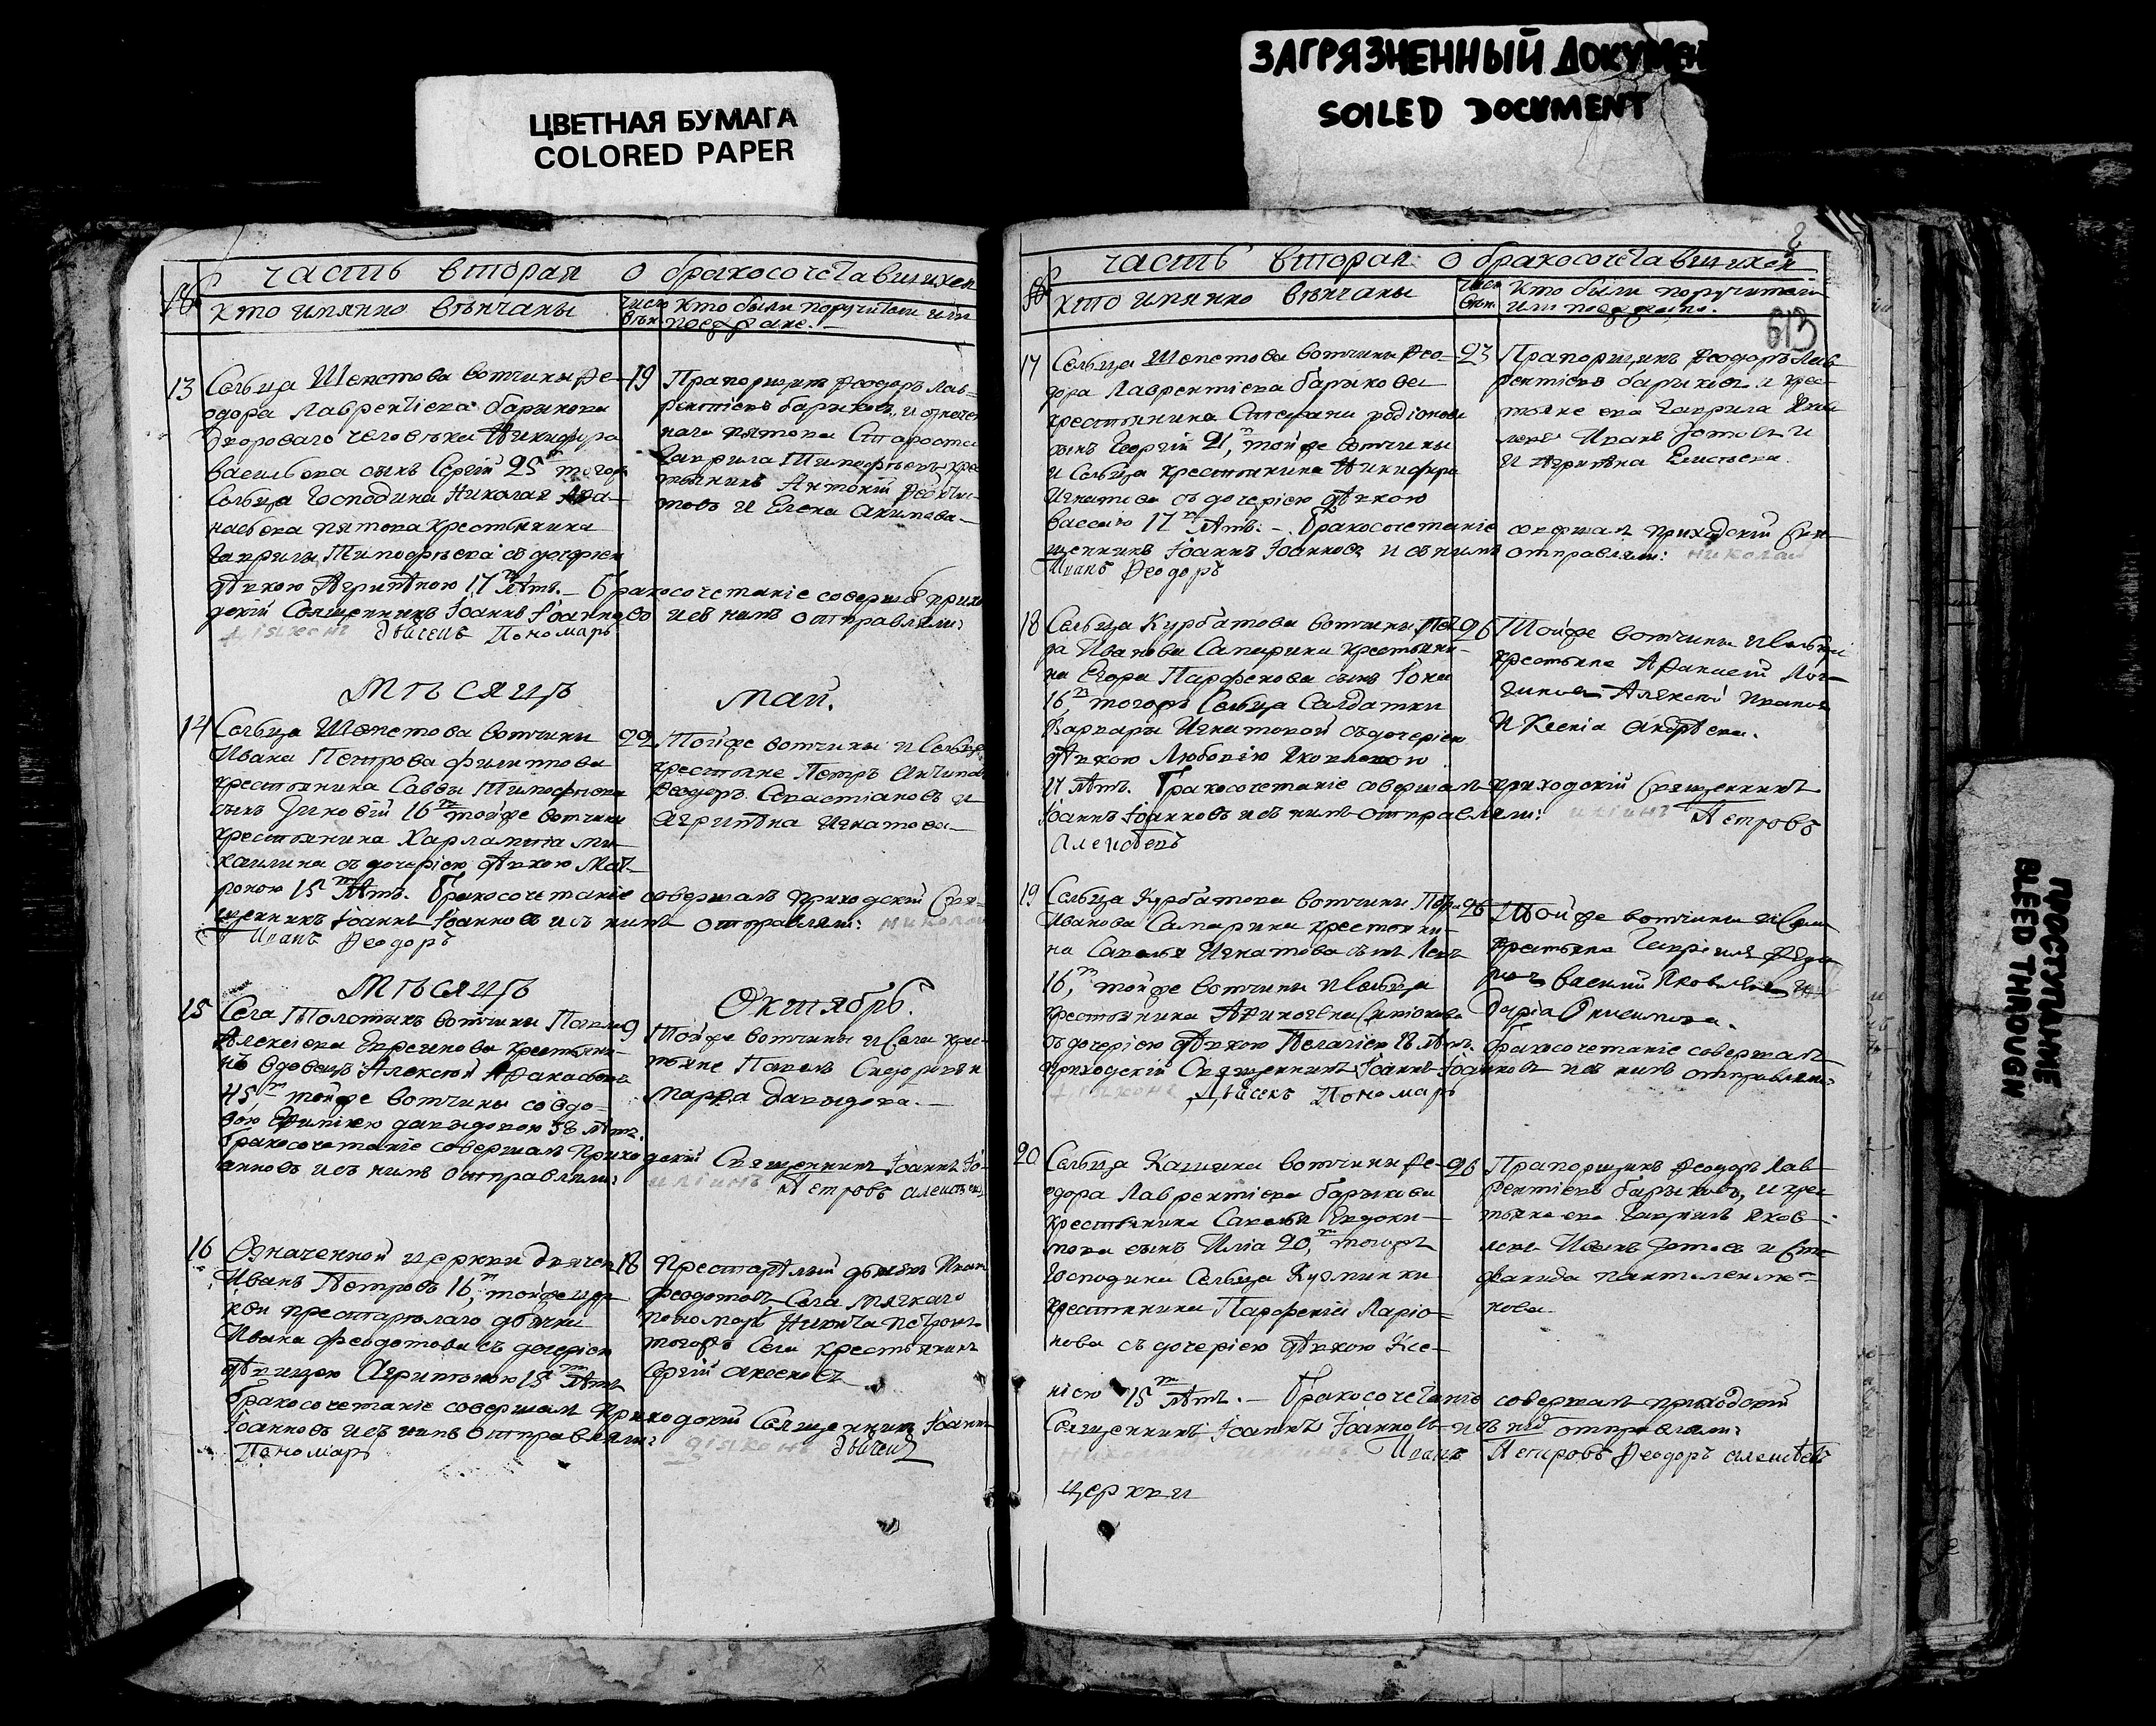 ЦВЕТНАЯ БУМАГА
COLORED PAPER
ЗАГРЯЗНЕННЫЙ ДОКУМЕН
SOILED DOCUMENT
часть вторая о бракосочетавшихся
кто имянно венчаны
Кто были поручители или
поезжане.
13 Сельца Шепотова вотчины Фе- 19
одора Лаврентіева барыкова
дворового человѣка Никифора
васильева сынъ Сергій 25 тогожъ
Сельца Господина Николая Афа-
насьева пятова крестьянина
Гаврилы Тимофѣева съ дочерію
дѣвкою Агрипѣною 17 лѣтъ. – Бракосочетаніе соверш. прихо
дскій Священникъ Іоаннъ Іоанновъ и съ нимъ отправляли:
діяконъ дьячекъ Пономарь
Прапорщикъ Феодоръ Лав-
рентіевъ барыковъ, и означен
наго пятова Староста
Гаврила Тимофѣевъ кре
стьянинъ Антоній
и Елена акимова
Мѣсяцъ май.
14 Сельца Шепотова вотчины 22
Ивана Петрова филиппова
крестьянина Саввы Тимофѣева
сынъ Зиновій 16 тойже вотчины
крестьянина Харлампія ми-
хаилина съ дочерію дѣвкою Мат-
роною 15 лѣтъ. Бракосочетаніе совершалъ приходскій Свя-
щенникъ Іоаннъ Іоанновъ и съ нимъ отправляли: николай
Иванъ Феодоръ
Тойже вотчины и Сельца
крестьяне Петръ
Феодоръ Савастіановъ и
Агрипѣна Игнатова
Мѣсяцъ Октябрь.
15 Села Толстыхъ вотчины Павла 9
Алексіева крестьяни-
нъ вдовецъ Алексій Афанасьевъ
45, тойже вотчины со вдо-
вою Ефиміею давыдовою 38 лѣтъ.
Бракосочетаніе совершалъ приходскій Священникъ Іоаннъ Іо-
анновъ и съ нимъ отправляли:
Петровъ алексѣевъ
Тойже вотчины и Села крес-
тьяне Павелъ Сидоровъ и
марфа давыдова.
16 Означенной церкви дьячекъ 18
Иванъ Петровъ 16, тойже цер
кви престарѣлаго дьячка
Ивана Феодотова съ дочерію
дѣвицею Агрипѣною 15 лѣтъ
Бракосочетаніе совершалъ приходскій Священникъ Іоаннъ
Іоанновъ и съ нимъ отправляли:
діяконъ дьячекъ
Пономарь
Престарѣлый дьячекъ Иванъ
феодотовъ Села мягкаго
пономарь Никита петровъ
тогожъ Села крестьянинъ
Сергій
часть вторая о бракосочетавшихся
кто имянно венчаны
Кто были поручители
или поезжане.
613
17 Сельца Шепотова вотчины Фео- 23
дора Лаврентіева барыкова
крестьянина Стефана родіонова
сынъ Георгій 21, тойже вотчины
и Сельца крестьянина Никифора
Игнатова съ дочерію дѣвкою
вассою 17 лѣтъ. – Бракосочетаніе совершалъ приходскій Свя-
щенникъ Іоаннъ Іоанновъ и съ нимъ отправляли: николай
Иванъ Феодоръ
Прапорщикъ Феодоръ Лав
рентіевъ барыковъ и крес-
тьяне ево Гаврила Яков
левъ Иванъ Зотовъ и
и Агрипѣна Елисѣева
18 Сельца Курбатова вотчины Пет 26
ра Иванова Самарина крестьяни-
на Егора Парфенова сынъ Іона
16, тогожъ Сельца Салдатки
Варвары Игнатовой съ дочерію
дѣвкою Любовію Яковлевою
лѣтъ. Бракосочетаніе совершалъ приходскій Священникъ
Іоаннъ Іоанновъ и съ нимъ отправляли: Петровъ
алексѣевъ
Тойже вотчины и Сельца
крестьяне Афанасей Лог-
гиновъ Алексѣй Ивановъ
и Ксенія андрѣева.
19 Сельца Курбатова вотчины Петра 26
Иванова Самарина крестьяни-
на Савелья Игнатова сынъ Левъ
16, тойже вотчины и Сельца
крестьянина
съ дочерію дѣвкою Пелагіею 18 лѣтъ. Бракосочетаніе совершалъ
приходскій Священникъ Іоаннъ Іоанновъ и съ нимъ отправляли:
діяконъ Дьячекъ Пономарь
Тойже вотчины и Сельца
крестьяне Гавріилъ Федо
ровъ василій Яковлевъ и
Дарія Онисимова.
20 Сельца Кашина вотчины Фе- 26
одора Лаврентіева барыкова
крестьянина Савелья Евдоки-
мова сынъ Илія 20, тогожъ
Господина Сельца Кузминки
крестьянина Парфенія Ларіо-
нова съ дочерію дѣвкою Ксе-
ніею 15 лѣтъ. – Бракосочетаніе совершалъ приходскій
Священникъ Іоаннъ Іоанновъ и съ нимъ отправляли:
Иванъ Петровъ Феодоръ алексѣевъ
церкви
Прапорщикъ Феодоръ Лав-
рентіевъ барыковъ, и крес
тьяне ево Гаврилъ Яков-
левъ Иванъ Зотовъ и Сте-
фанида пантелеимо-
нова
ПРОСТУПАНИЕ
BLEED THROUGH